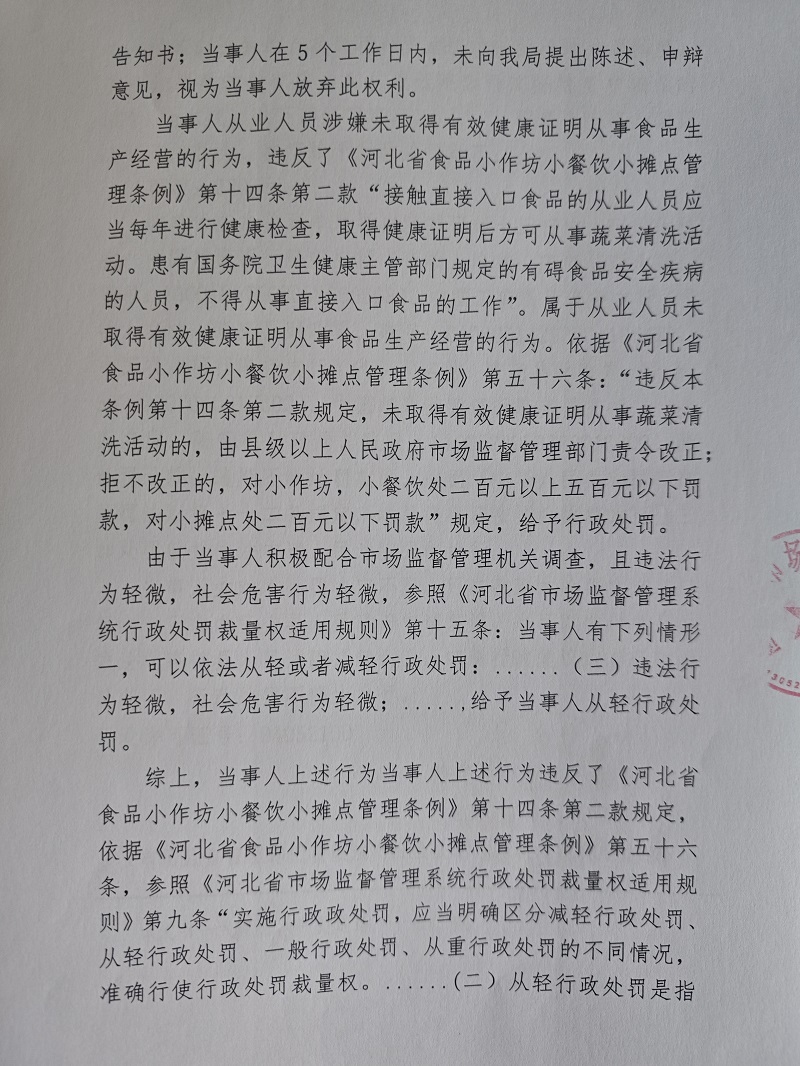 告知书；当事人在5个工作日内，未向我局提出陈述、申辩
意见，视为当事人放弃此权利。
当事人从业人员涉嫌未取得有效健康证明从事食品生
产经营的行为，违反了《河北省食品小作坊小餐饮小摊点管
理条例》第十四条第二款“接触直接入口食品的从业人员应
当每年进行健康检查，取得健康证明后方可从事蔬菜清洗活
动。患有国务院卫生健康主管部门规定的有碍食品安全疾病
的人员，不得从事直接入口食品的工作”。属于从业人员未
取得有效健康证明从事食品生产经营的行为。依据《河北省
食品小作坊小餐饮小摊点管理条例》第五十六条：“违反本
条例第十四条第二款规定，未取得有效健康证明从事蔬菜清
洗活动的，由县级以上人民政府市场监督管理部门责令改正；
拒不改正的，对小作坊，小餐饮处二百元以上五百元以下罚
款，对小摊点处二百元以下罚款”规定，给予行政处罚。
由于当事人积极配合市场监督管理机关调查，且违法行
为轻微，社会危害行为轻微，参照《河北省市场监督管理系
统行政处罚裁量权适用规则》第十五条：当事人有下列情形
一，可以依法从轻或者减轻行政处罚：......（三）违法行
为轻微，社会危害行为轻微；.....,给予当事人从轻行政处
罚。
综上，当事人上述行为当事人上述行为违反了《河北省
食品小作坊小餐饮小摊点管理条例》第十四条第二款规定，
依据《河北省食品小作坊小餐饮小摊点管理条例》第五十六
条，参照《河北省市场监督管理系统行政处罚裁量权适用规
则》第九条“实施行政政处罚，应当明确区分减轻行政处罚、
从轻行政处罚、一般行政处罚、从重行政处罚的不同情况，
准确行使行政处罚裁量权。......(二）从轻行政处罚是指